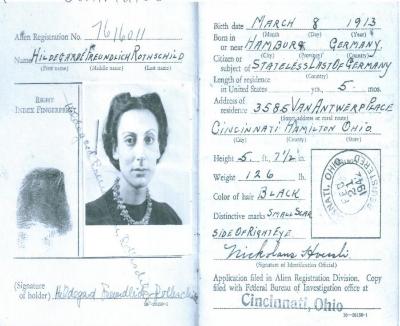 Alien Registration No. 7616011
Name HILDEGARDE FREUNDLICH ROTHSCHILD
(First name) (Middle name) (Last name)
RIGHT
INDEX FINGERPRINT
(Signature
of holder) Hildegard Freundlich Rothschild
16-26150-1
Birth date MARCH 8 1913
(Month) (Day) (Year)
Born in
or near HAMBURG GERMANY
(City) (Province) (Country)
Citizen or
subject of STATELESS LAST OF GERMANY
(Country)
Length of residence
in United States yrs., 5 mos.
Address of
residence 3585 VAN ANTWERP PLACE
(Street address or rural route)
CINCINNATI HAMILTON OHIO
(City) (County) (State)
Height 5 ft., 7½ in.
Weight 126 lb.
Color of hair BLACK
Distinctive marks SMALL SCAR
SIDE OF RIGHT EYE
REGISTERED
OHIO
FEB
21
1942
Nickolaus
(Signature of Identification Official)
Application filed in Alien Registration Division. Copy
filed with Federal Bureau of Investigation office at
Cincinnati, Ohio
16-26150-1